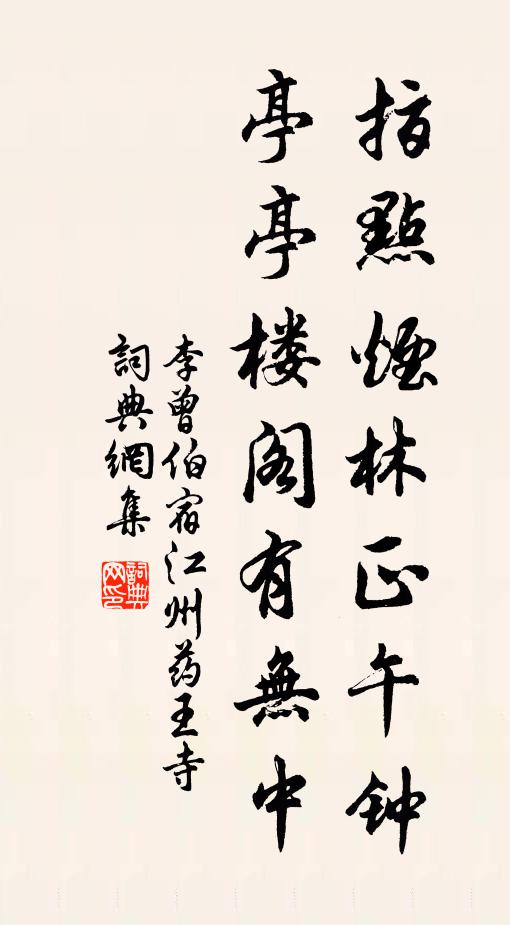 指點煙林正午钟
亭亭楼阁有無中
李曾伯宿江州药王寺
詞典網集
詞典网印